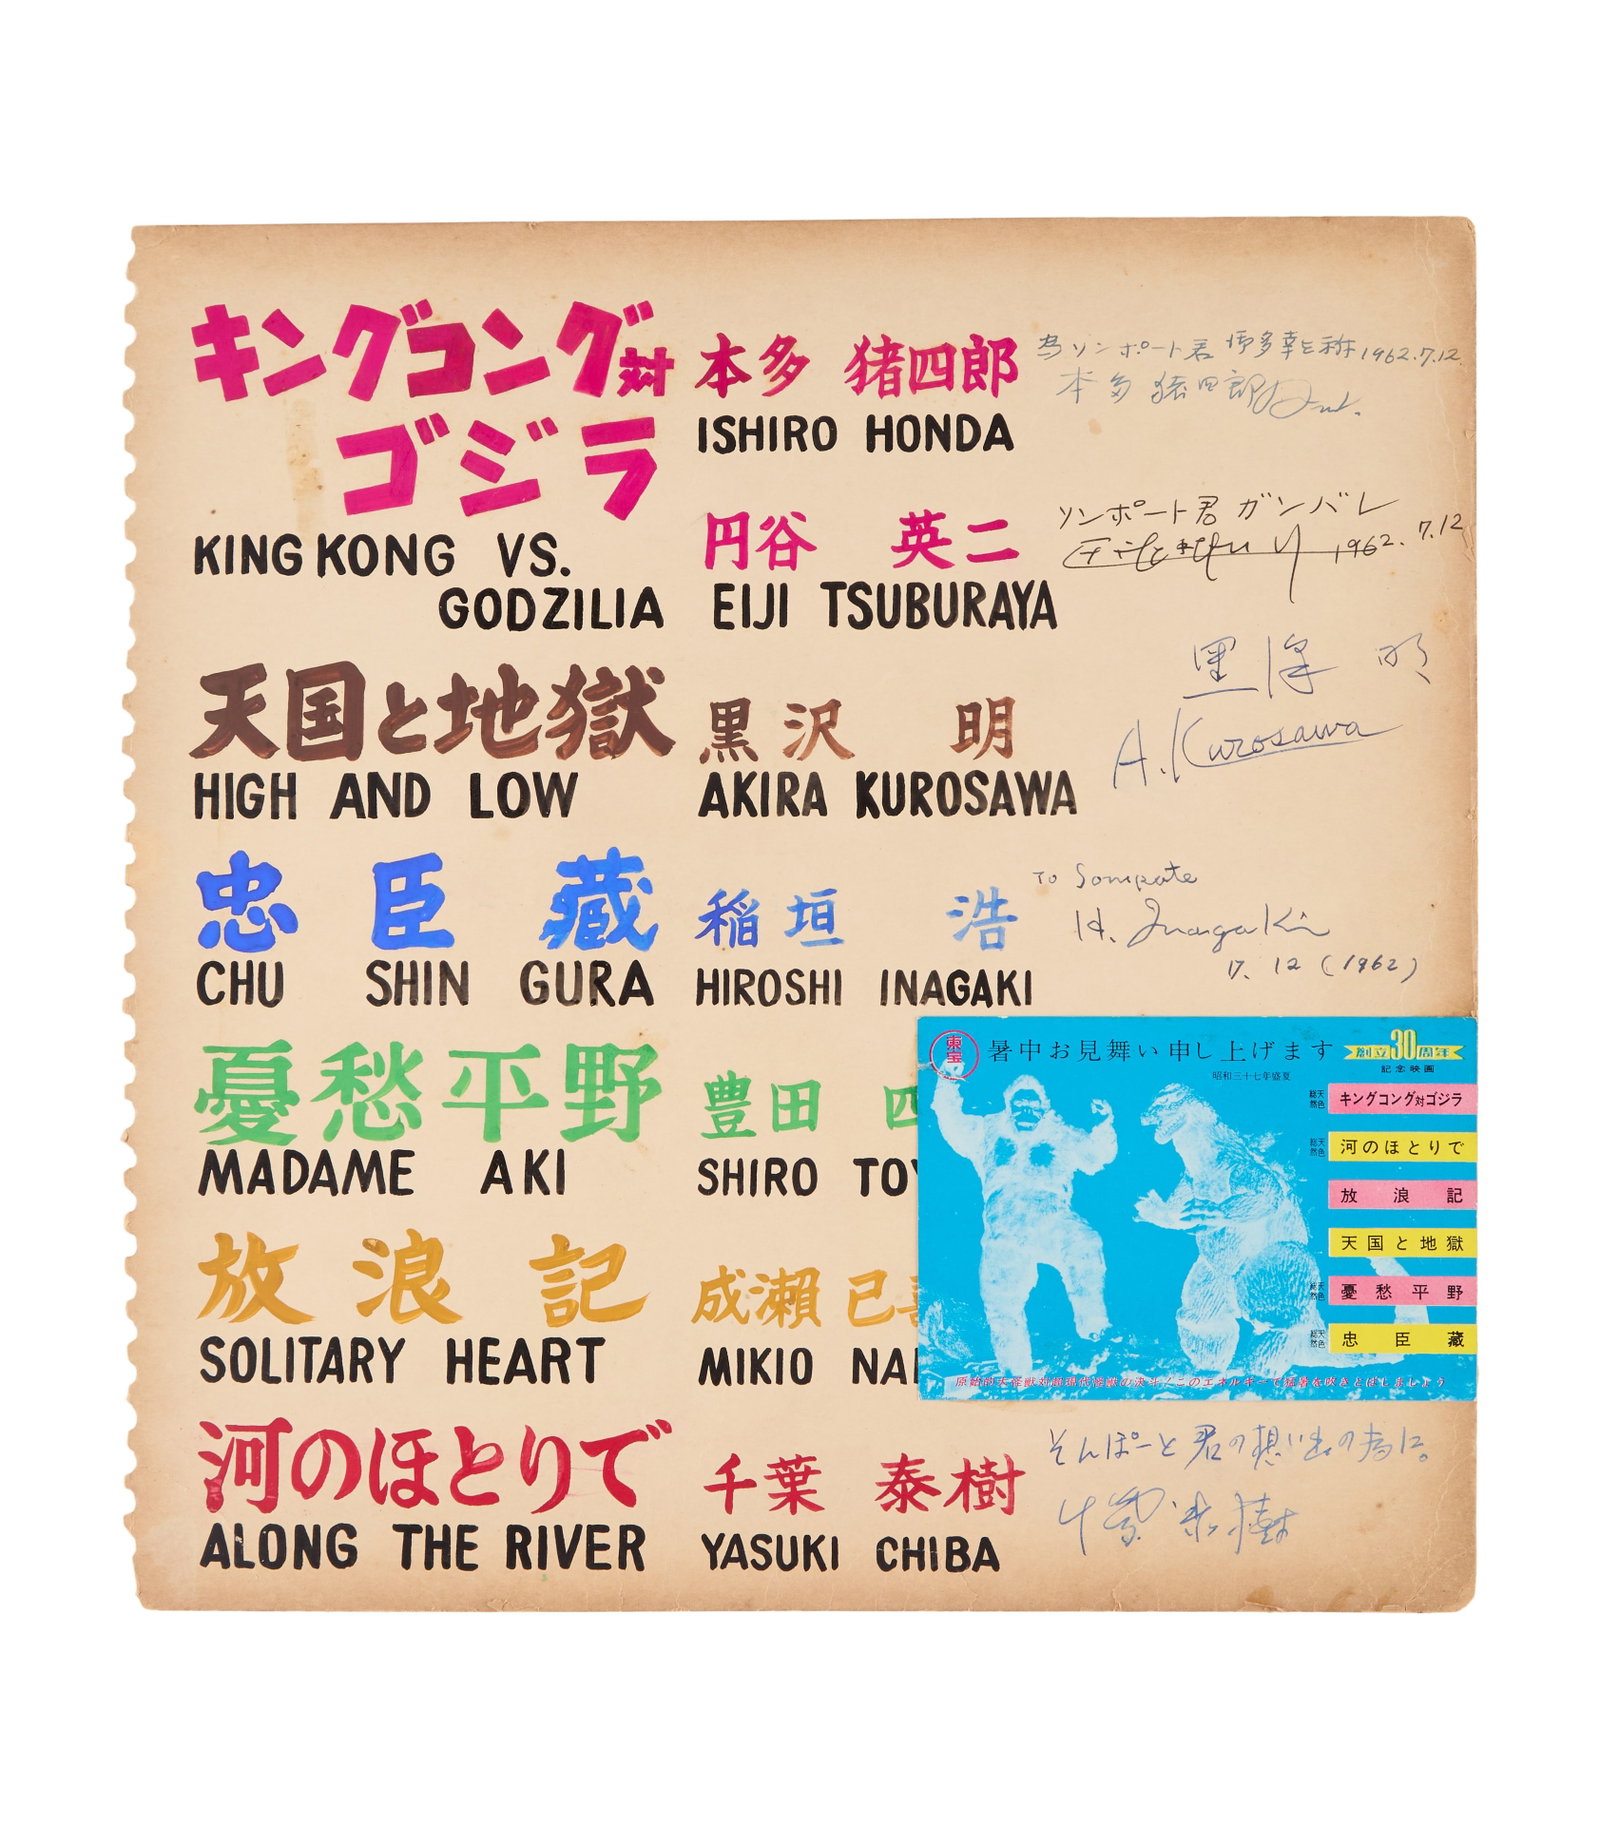 キングコング対
ゴジラ
KING KONG VS.
GODZILIA
本多 猪四郎
ISHIRO HONDA
ソンポート君
1962.7.12.
本多猪四郎
円谷 英二
EIJI TSUBURAYA
ソンポート君 ガンバレ
1962.7.12
天国と地獄
HIGH AND LOW
黒沢 明
AKIRA KUROSAWA
黒澤 明
A. Kurosawa
忠臣藏
CHU SHIN GURA
稲垣 浩
HIROSHI INAGAKI
TO Sompote
H. Inagaki
17. 12 (1962)
憂愁平野
MADAME AKI
豊田 四
SHIRO TOY
放浪記
SOLITARY HEART
成瀬 己喜
MIKIO NA
東宝
暑中お見舞い申し上げます
昭和三十七年盛夏
創立30周年
記念映画
総天然色
キングコング対ゴジラ
総天然色
河のほとりで
放浪記
天国と地獄
総天然色
憂愁平野
総天然色
忠臣藏
原始的大怪獣対超現代怪獣の決斗!このエネルギーで猛暑を吹きとばしましょう
河のほとりで
ALONG THE RIVER
千葉 泰樹
YASUKI CHIBA
そんぽーと君の想い出の為に。
千葉泰樹